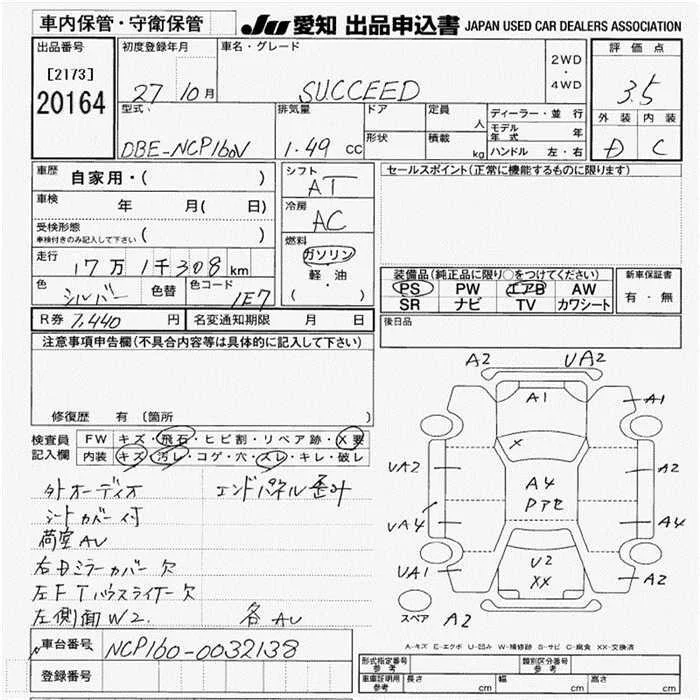 車内保管・守衛保管
JU 愛知 出品申込書 JAPAN USED CAR DEALERS ASSOCIATION
出品番号
[2173]
20164
初度登録年月
27 10月
車名・グレード
SUCCEED
2WD
・
4WD
評価点
3.5
外装 内装
D C
型式
DBE-NCP160V
排気量
1.49 cc
ドア
形状
定員
人
積載
kg
ディーラー・並行
モデル年式 年
ハンドル 左・右
車歴 自家用・( )
車検 年 月( 日)
受検形態
車検付きのみ記入して下さい ( )
走行 17万1千308km
色 シルバー 色替 色コード 1E7
シフト
AT
冷房
AC
燃料
ガソリン
軽・油
( )
セールスポイント(正常に機能するものに限ります)
装備品(純正品に限り○をつけてください)
PS PW エアB AW
SR ナビ TV カワシート
新車保証書
有・無
R券 7,440 円 名変通知期限 月 日
後日品
注意事項申告欄(不具合内容等は具体的に記入して下さい)
修復歴 有 (箇所 )
検査員 FW キズ・飛石・ヒビ割・リペア跡・X要
記入欄 内装 キズ・汚レ・コゲ・穴・スレ・キレ・破レ
外オーディオ エンドパネル歪み
シートカバー付
荷室AU
右Dミラーカバー欠
左FTハウスライナー欠
左側面W2. 各AU
A2 UA2
A1 A1
X
UA2 A2
A4
Pアセ
UA4 A4
U2
XX
UA1 A2
スペア A2
A-キズ E-エクボ U-凹み W-補修跡 S-サビ C-腐食 XX-交換済
車台番号 NCP160-0032138
登録番号
形式指定番号 参考 類別区分番号 参考
車庫証明用 参考 長さ cm 幅 cm 高さ cm